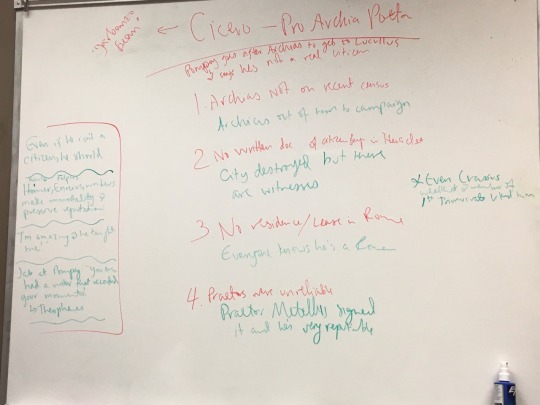 "garbanzo bean" ← Cicero — Pro Archia Poeta
Pompey goes after Archias to get to Lucullus
& says he's not a real citizen
1. Archias not on recent census
Archias out of town to campaign
2 No written doc of citizenship in
City destroyed but there
are witnesses
3 No residence/Lease in Rome
Everyone knows he's a
4. Praetors were unreliable
Praetor Metellus signed
it and he's very reputable
Even if he isn't a
citizen he should
Homer, Ennius,
make immortality &
preserve reputation
"I'm amazing & he taught
me!"
Jab at Pompey "you
had a writer that recorded
your moments"
to Theophanes
*Even Crassus
wealthiest & member of
1st Triumvirate liked him